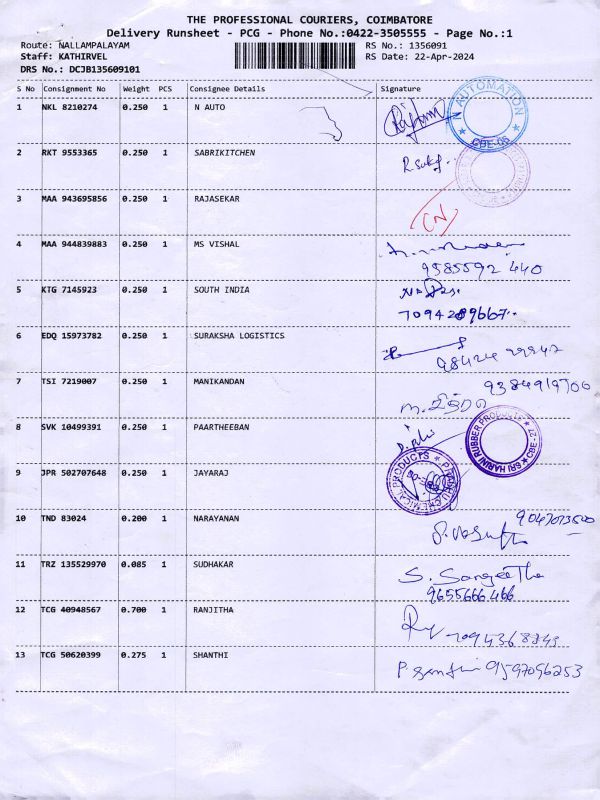 THE PROFESSIONAL COURIERS, COIMBATORE
Delivery Runsheet - PCG - Phone No.:0422-3505555 - Page No.:1
Route: NALLAMPALAYAM RS No.: 1356091
Staff: KATHIRVEL RS Date: 22-Apr-2024
DRS No.: DCJB135609101
S No Consignment No Weight PCS Consignee Details Signature
1 NKL 8210274 0.250 1 N AUTO
N AUTOMATION
CBE-06
2 RKT 9553365 0.250 1 SABRIKITCHEN
3 MAA 943695856 0.250 1 RAJASEKAR
CN
4 MAA 944839883 0.250 1 MS VISHAL
9585592 440
5 KTG 7145923 0.250 1 SOUTH INDIA
7094289667
6 EDQ 15973782 0.250 1 SURAKSHA LOGISTICS
7 TSI 7219007 0.250 1 MANIKANDAN
8 SVK 10499391 0.250 1 PAARTHEEBAN
SRI HARINI RUBBER PRODUCTS
CBE-27
9 JPR 502707648 0.250 1 JAYARAJ
10 TND 83024 0.200 1 NARAYANAN
11 TRZ 135529970 0.085 1 SUDHAKAR
S. Sangeetha
9655666466
12 TCG 40948567 0.700 1 RANJITHA
13 TCG 50620399 0.275 1 SHANTHI
9597096253